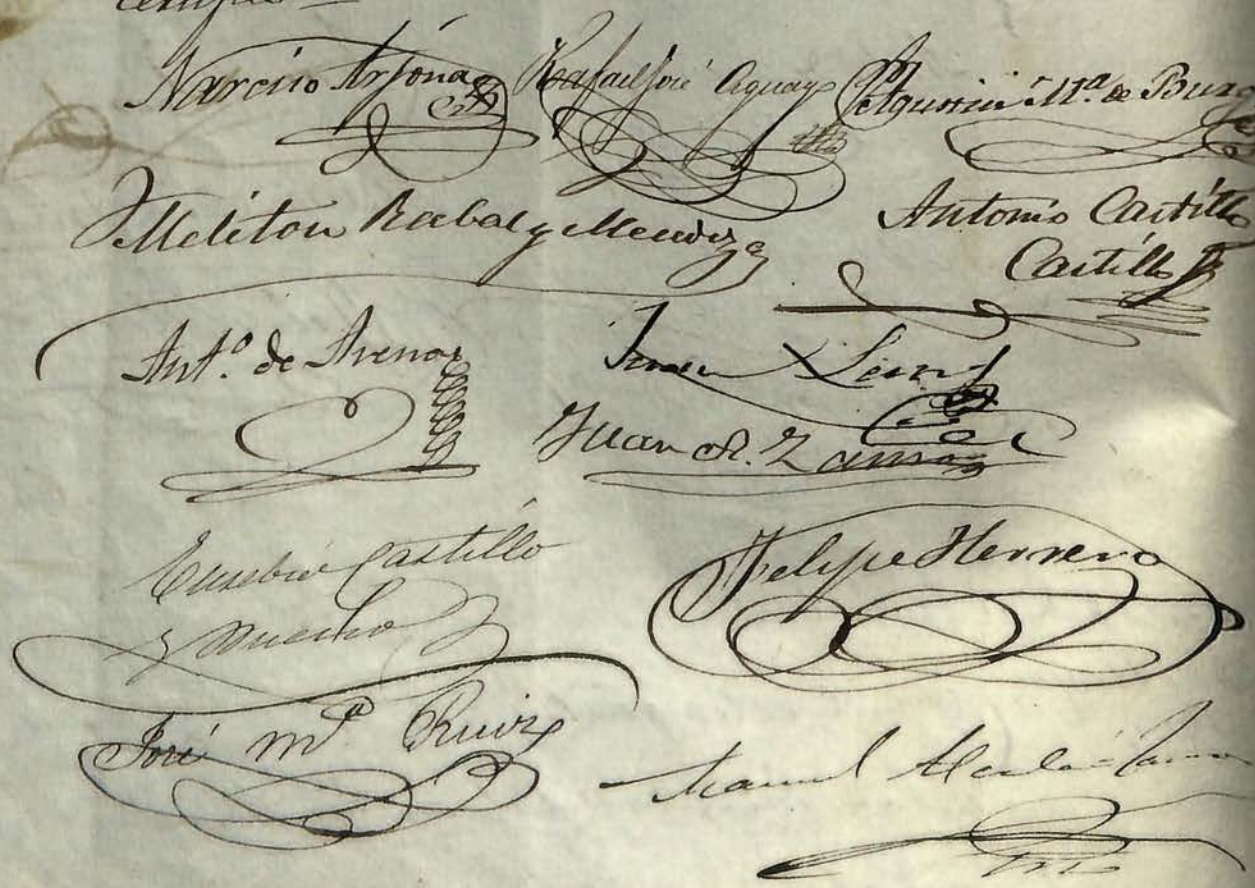 Narciso Arjona Rafael José Aguayo Agustin M.ª de Burg
Meliton Rabal y Mendiz
Antonio Castillo
Castillo
Ant.º de Arenas
Juan León
Juan R. Zamora
Eusebio Castillo
y
Felipe Herrero
José Mª Ruiz
Manuel Alcalá